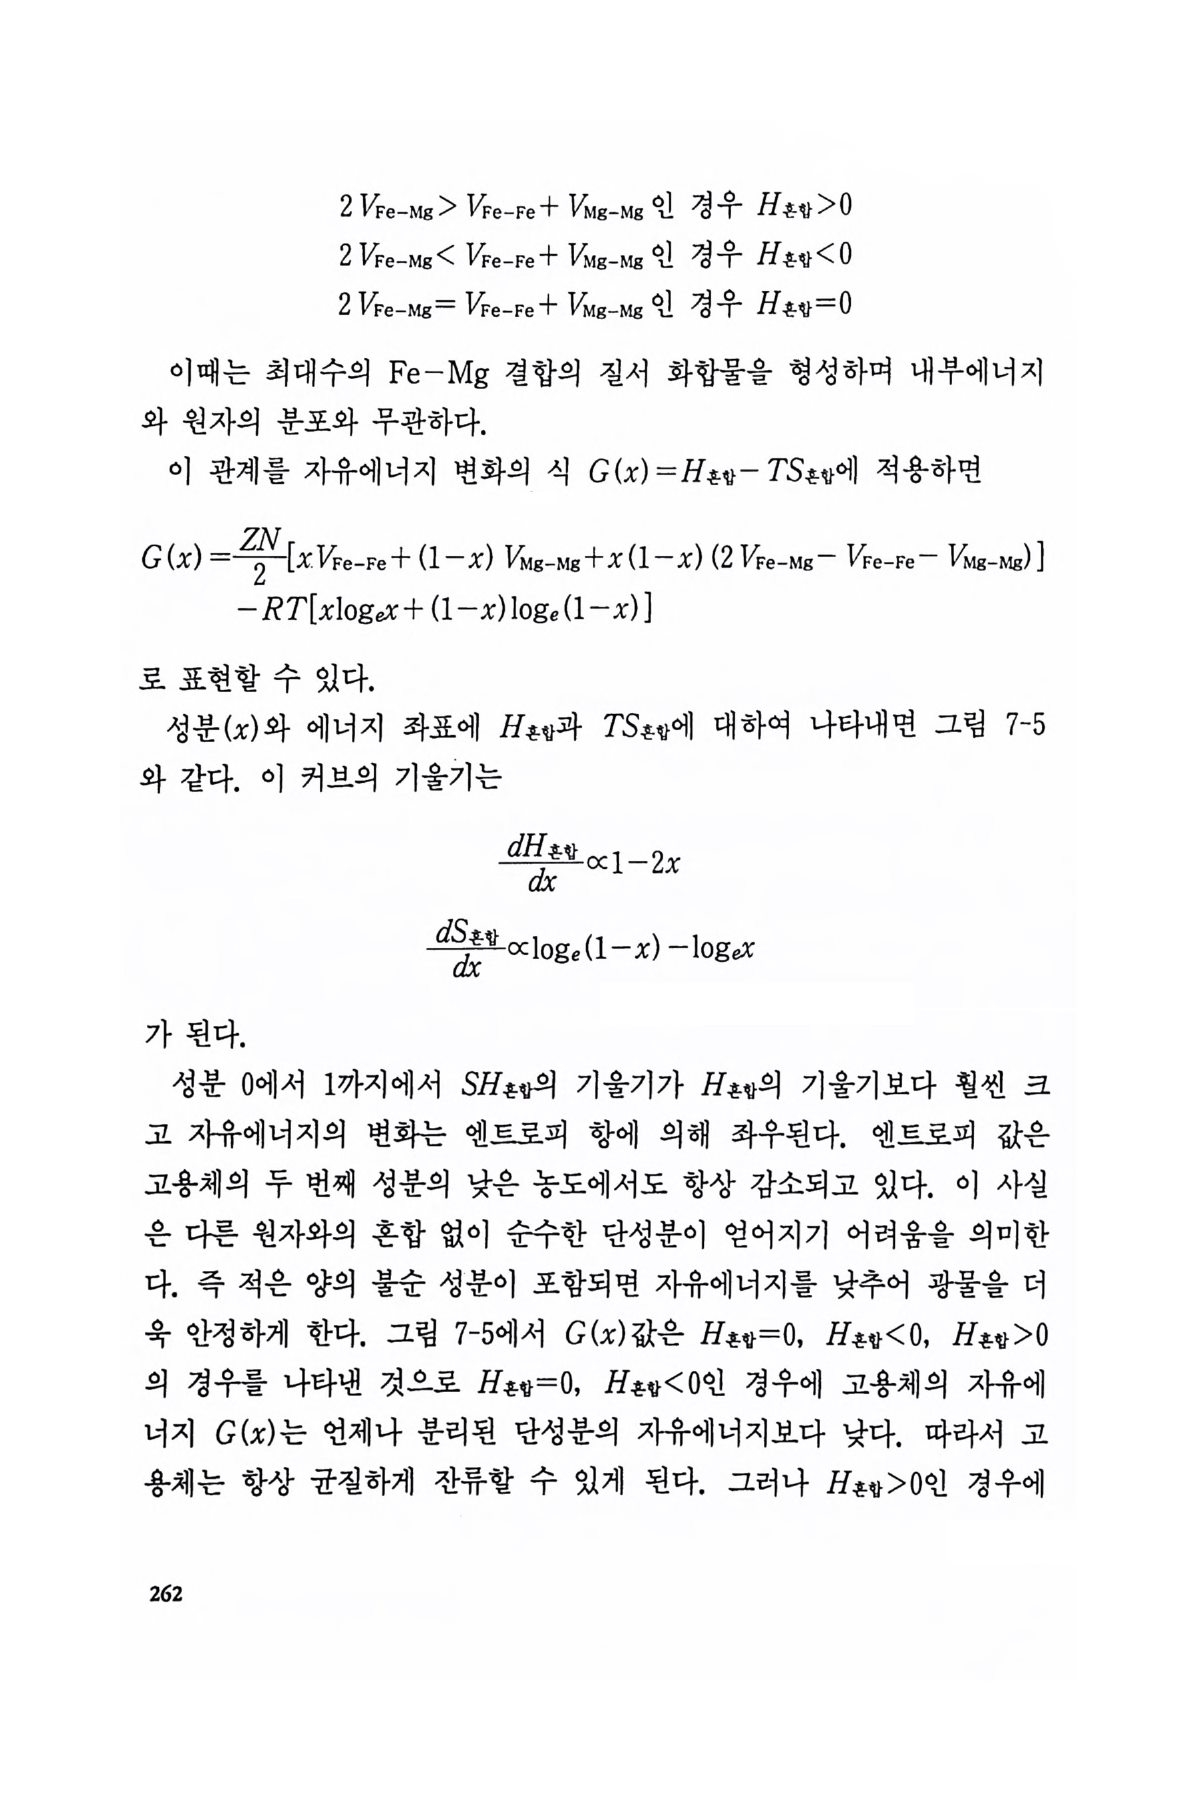 2 V_Fe-Mg > V_Fe-Fe + V_Mg-Mg 인 경우 H_혼합>0
2 V_Fe-Mg < V_Fe-Fe + V_Mg-Mg 인 경우 H_혼합<0
2 V_Fe-Mg = V_Fe-Fe + V_Mg-Mg 인 경우 H_혼합=0
이때는 최대수의 Fe-Mg 결합의 질서 화합물을 형성하며 내부에너지
와 원자의 분포와 무관하다.
이 관계를 자유에너지 변화의 식 G(x)=H_혼합-TS_혼합에 적용하면
G(x)=ZN/2[xV_Fe-Fe+(1-x) V_Mg-Mg+x(1-x)(2V_Fe-Mg-V_Fe-Fe-V_Mg-Mg)]
-RT[xlog_e x+(1-x)log_e(1-x)]
로 표현할 수 있다.
성분(x)와 에너지 좌표에 H_혼합과 TS_혼합에 대하여 나타내면 그림 7-5
와 같다. 이 커브의 기울기는
dH_혼합/dx ∝1-2x
dS_혼합/dx ∝log_e(1-x)-log_e x
가 된다.
성분 0에서 1까지에서 SH_혼합의 기울기가 H_혼합의 기울기보다 훨씬 크
고 자유에너지의 변화는 엔트로피 항에 의해 좌우된다. 엔트로피 값은
고용체의 두 번째 성분의 낮은 농도에서도 항상 감소되고 있다. 이 사실
은 다른 원자와의 혼합 없이 순수한 단성분이 얻어지기 어려움을 의미한
다. 즉 적은 양의 불순 성분이 포함되면 자유에너지를 낮추어 광물을 더
욱 안정하게 한다. 그림 7-5에서 G(x)값은 H_혼합=0, H_혼합<0, H_혼합>0
의 경우를 나타낸 것으로 H_혼합=0, H_혼합<0인 경우에 고용체의 자유에
너지 G(x)는 언제나 분리된 단성분의 자유에너지보다 낮다. 따라서 고
용체는 항상 균질하게 잔류할 수 있게 된다. 그러나 H_혼합>0인 경우에
262